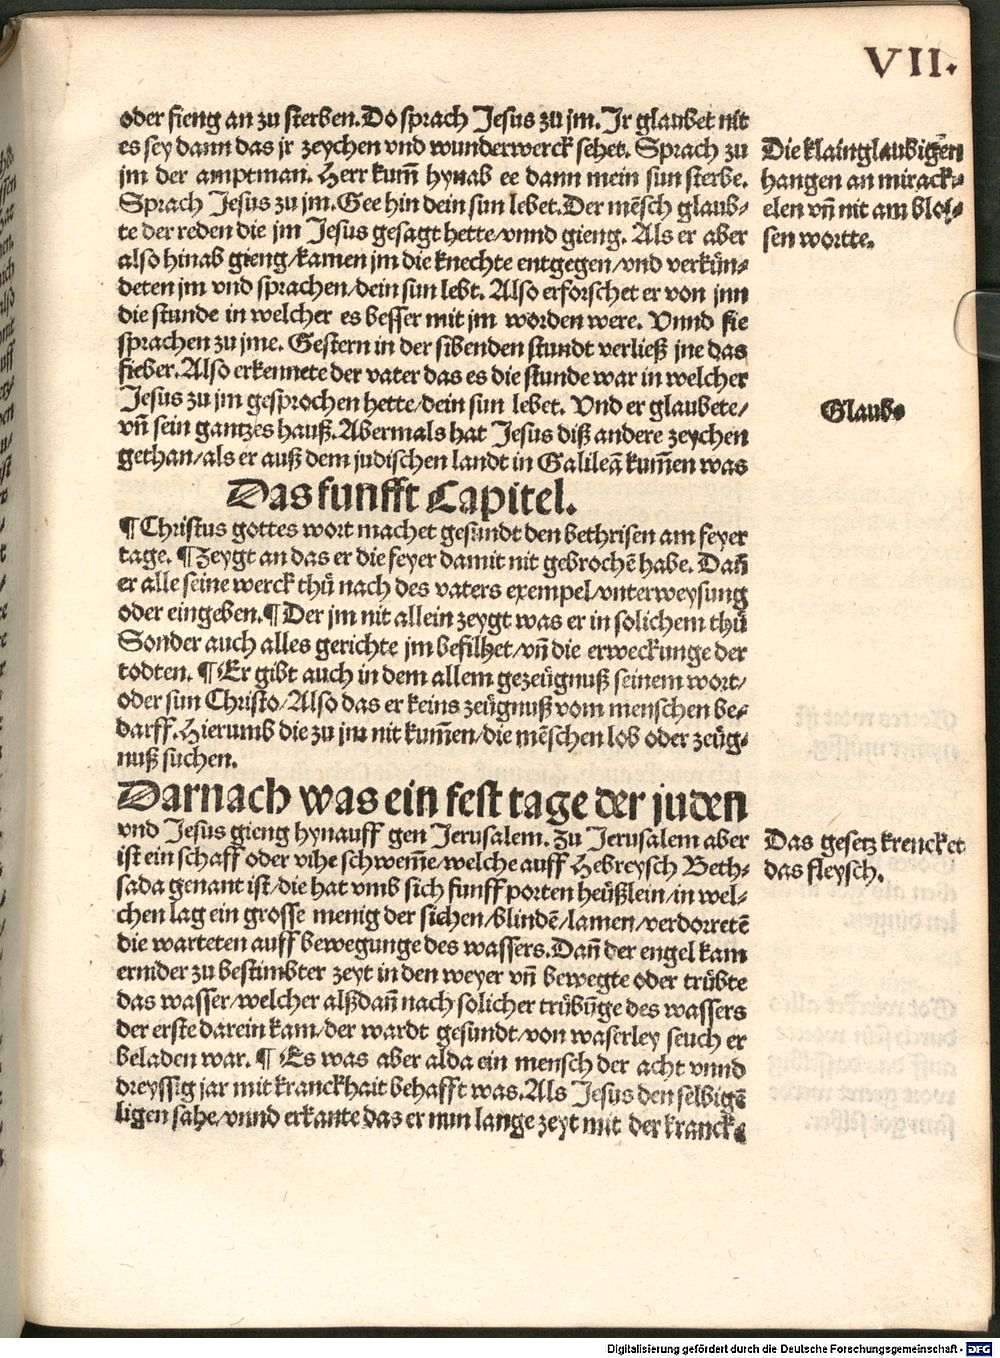 VII.
oder fieng an zu sterben. Do sprach Jesus zu jm. Jr glaubet nit
es sey dann das jr zeychen vnd wunderwerck sehet. Sprach zu
jm der amptman. Herr kum̃ hynab ee dann mein sun sterbe.
Sprach Jesus zu jm. Gee hin dein sun lebet. Der mẽsch glaub⸗
te der reden die jm Jesus gesagt hette/vnnd gieng. Als er aber
also hinab gieng/kamen jm die knechte entgegen/vnd verkün⸗
deten jm vnd sprachen/dein sun lebt. Also erforschet er von jnn
die stunde in welcher es besser mit jm worden were. Vnnd sie
sprachen zu jme. Gestern in der sibenden stundt verließ jne das
fieber. Also erkennete der vater das es die stunde war in welcher
Jesus zu jm gesprochen hette/dein sun lebet. Vnd er glaubete/
vñ sein gantzes hauß. Abermals hat Jesus diß andere zeychen
gethan/als er auß dem judischen landt in Galilea kum̃en was
Die klainglaubigen
hangen an mirack⸗
elen vñ nit am blos⸗
sen wortte.
Glaub.
Das funfft Capitel.
¶ Christus gottes wort machet gesundt den bethrisen am feyer
tage. ¶ Zeygt an das er die feyer damit nit gebrochẽ habe. Dañ
er alle seine werck thů nach des vaters exempel/vnterweysung
oder eingeben. ¶ Der jm nit allein zeygt was er in solichem thů
Sonder auch alles gerichte jm befilhet/vñ die erweckunge der
todten. ¶ Er gibt auch in dem allem gezeügnuß seinem wort/
oder sun Christo/Also das er keins zeügnuß vom menschen be⸗
darff. Hierumb die zu jm nit kum̃en/die mẽschen lob oder zeüg⸗
nuß suchen.
Darnach was ein fest tage der juden
vnd Jesus gieng hynauff gen Jerusalem. Zu Jerusalem aber
ist ein schaff oder vihe schwem̃e/welche auff Hebreysch Beth⸗
sada genant ist/die hat vmb sich funff porten heüßlein/in wel⸗
chen lag ein grosse menig der sichen/blindẽ/lamen/verdorretẽ
die warteten auff bewegunge des wassers. Dañ der engel kam
ernider zu bestimbter zeyt in den weyer vñ bewegte oder trübte
das wasser/welcher alßdañ nach solicher trübũge des wassers
der erste darein kam/der wardt gesundt/von waserley seuch er
beladen war. ¶ Es was aber alda ein mensch der acht vnnd
dreyssig jar mit kranckhait behafft was. Als Jesus den selbigẽ
ligen sahe/vnnd erkante das er nun lange zeyt mit der kranck⸗
Das gesetz krencket
das fleysch.
Digitalisierung gefördert durch die Deutsche Forschungsgemeinschaft - DFG